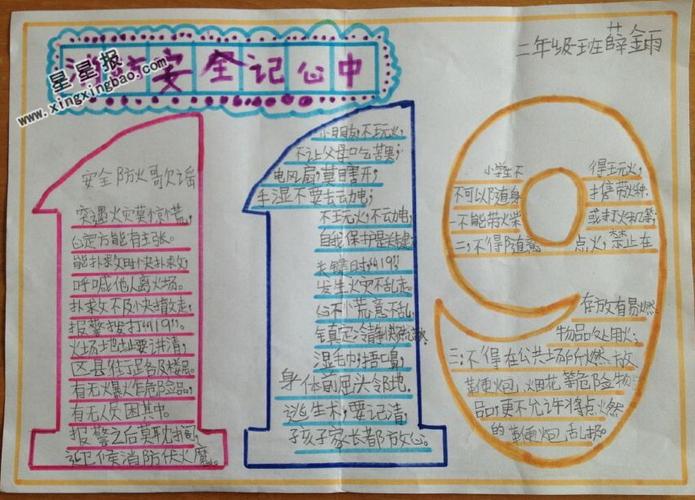 消防安全记心中
星星报
www.xingxingbao.com
二年级班薛金雨
安全防火歌谣
突遇火灾莫惊慌,
心定方能有主张。
能扑救时快扑救,
呼喊他人离火场。
扑救不及快撤走,
报警拨打“119”。
火场地址要讲清,
区县住址各及楼层。
有无爆炸危险品,
有无人员困其中。
报警之后莫耽搁,
迎候消防伏火魔。
小朋友不玩火,
不让父母吃苦果;
电风扇,莫目睹开,
手湿不要去动电;
不玉火,不云力电,
自我保护最关键;
关键时刻“119”
发生火灾不乱走。
心不慌,意不乱,
湿毛巾,捂口鼻,
身体前屈头邻地。
逃生术,要记清,
孩子家长都放心。
小学生不得玩火,
不可以随身携带火种,
一不能带火柴或打火机等,
二,不得随意点火,禁止在
存放有易燃
物品处用火;
三,不得在公共场所燃放
鞭炮、烟花等危险物
品,更不允许将点燃
的鞭炮乱扔。